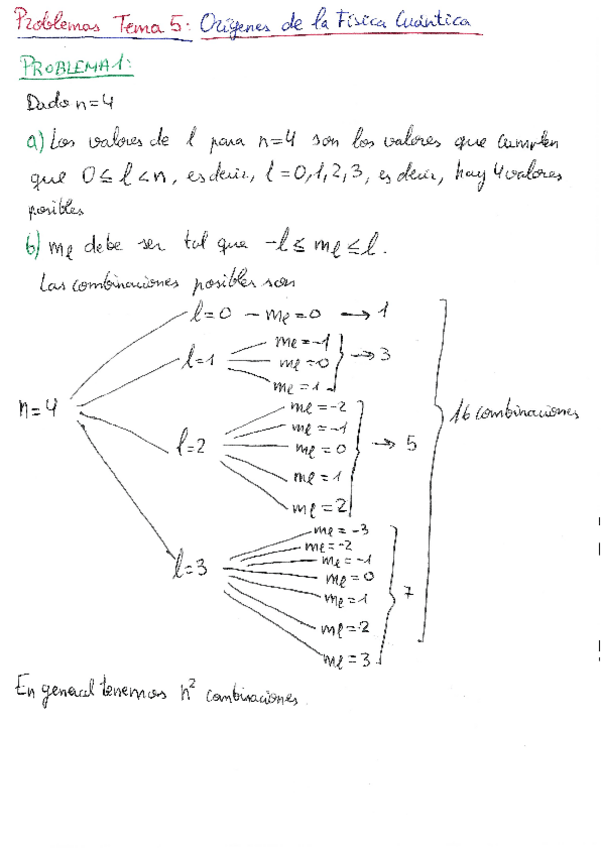 Problemas Tema 5: Orígenes de la Física Cuántica
PROBLEMA 1:
Dado n=4
a) Los valores de l para n=4 son los valores que cumplen
que 0 ≤ l < n, es decir, l = 0, 1, 2, 3, es decir, hay 4 valores
posibles
b) mℓ debe ser tal que -l ≤ mℓ ≤ l.
Las combinaciones posibles son
l=0 - mℓ=0 → 1
l=1
mℓ=-1
mℓ=0
mℓ=1
→ 3
n=4
l=2
mℓ=-2
mℓ=-1
mℓ=0
mℓ=1
mℓ=2
→ 5
l=3
mℓ=-3
mℓ=-2
mℓ=-1
mℓ=0
mℓ=1
mℓ=2
mℓ=3
7
16 combinaciones
En general tenemos n² combinaciones.